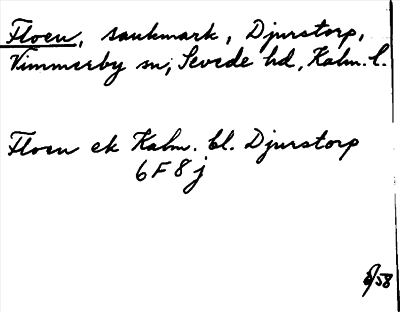 Floen, sankmark, Djurstorp,
Vimmerby sn, Sevede hd, Kalm. l.
Floen ek Kalm. bl. Djurstorp
6F8j
/58